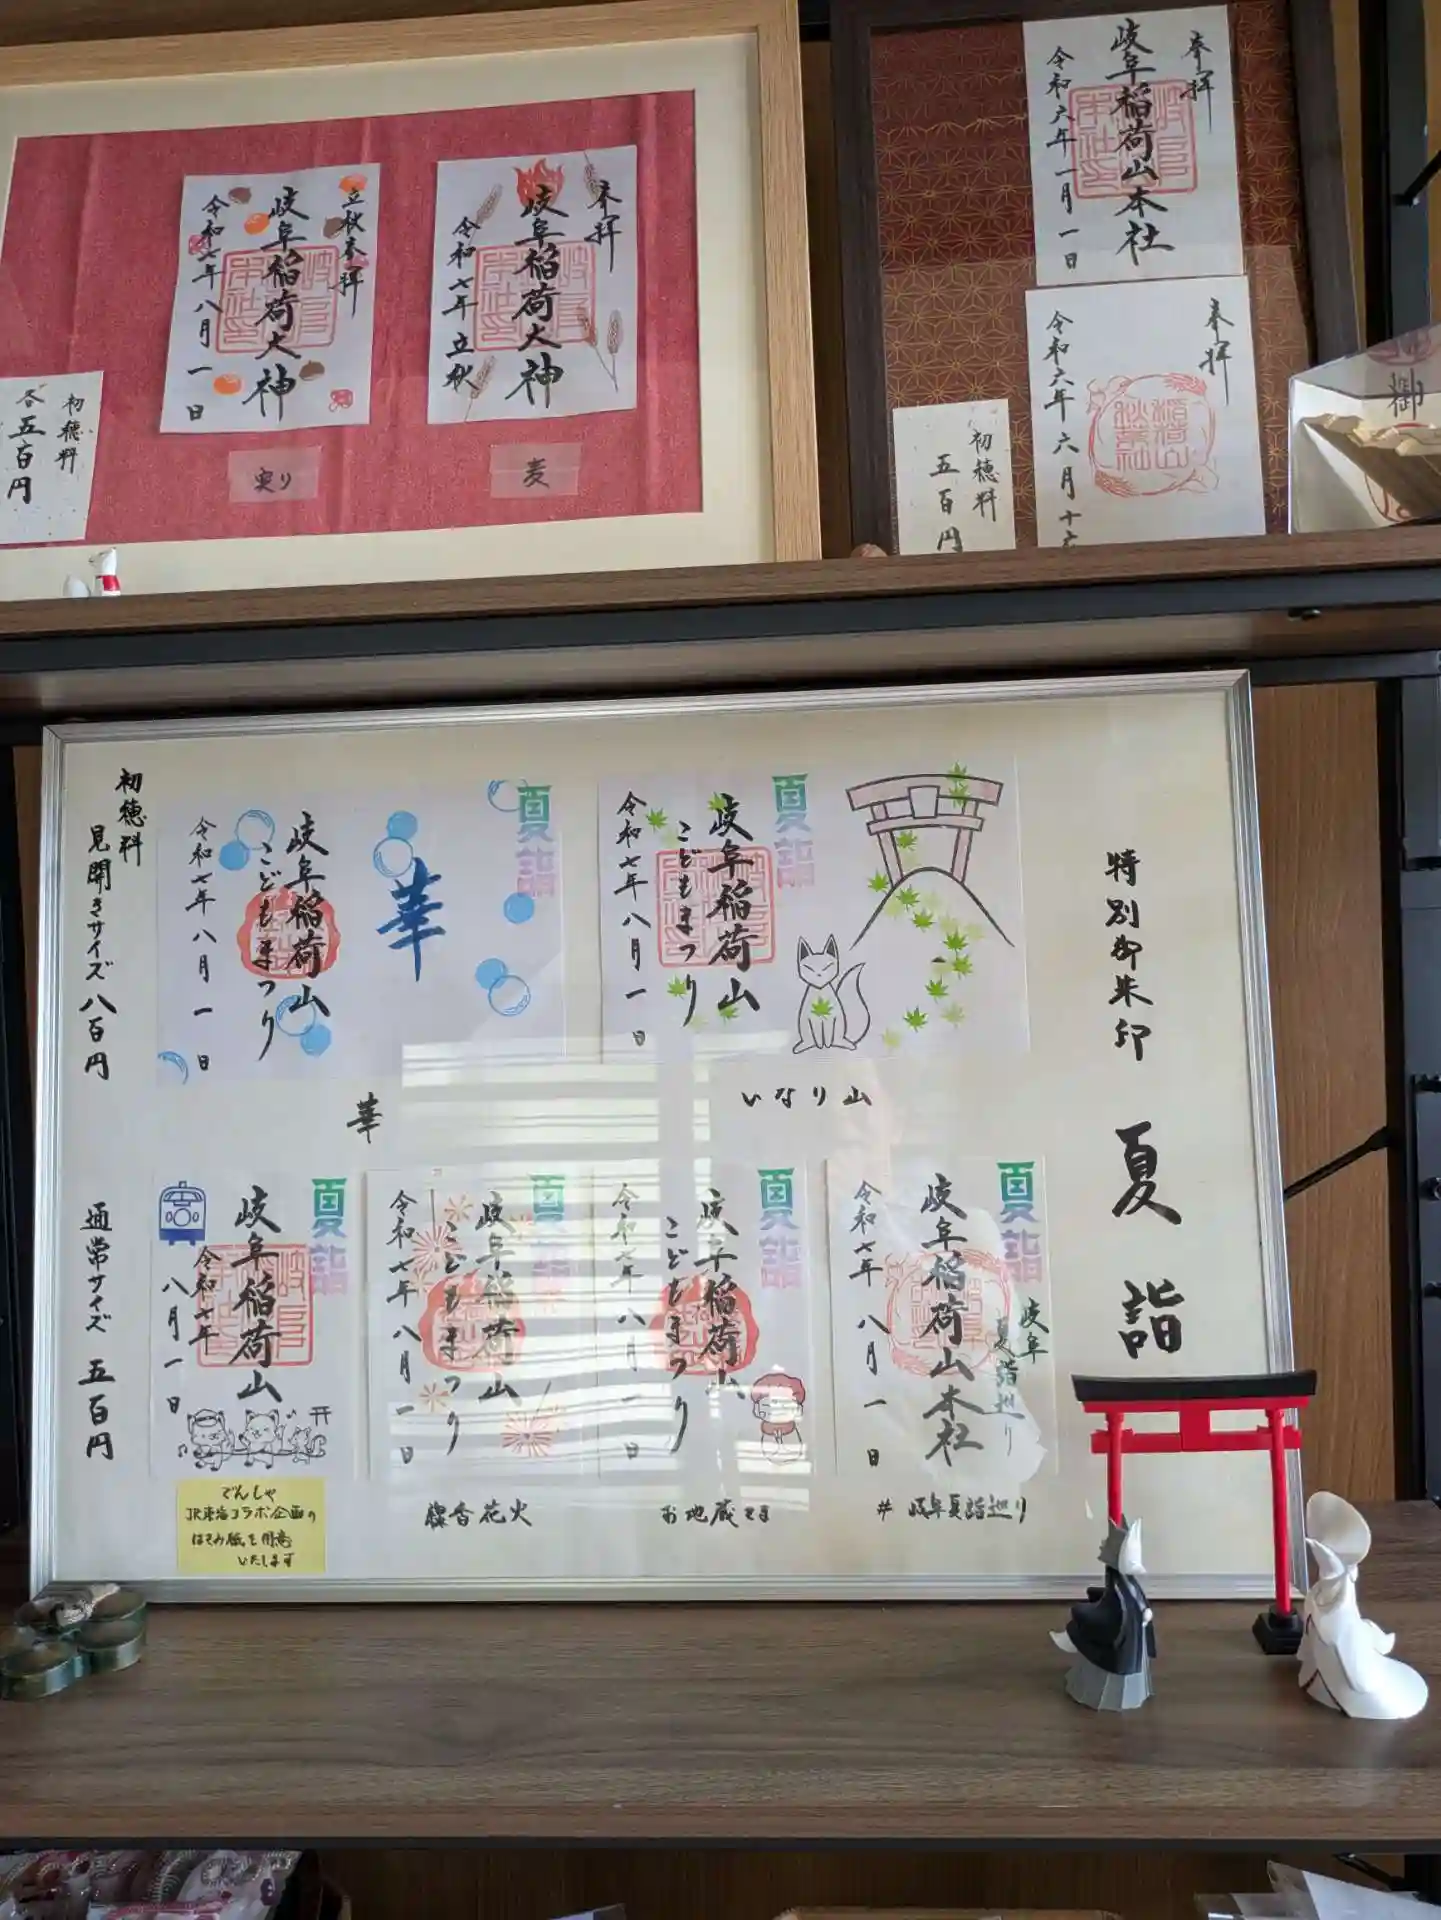 奉拝
岐阜稲荷山本社
令和六年一月一日
奉拝
令和六年六月十六
初穂料
五百円
御
奉拝
岐阜稲荷大神
令和七年立秋
麦
立秋奉拝
岐阜稲荷大神
令和七年八月一日
実り
初穂料
各五百円
特別御朱印
夏詣
夏詣
岐阜稲荷山
こどもまつり
令和七年八月一日
いなり山
夏詣
華
岐阜稲荷山
こどもまつり
令和七年八月一日
華
初穂料
見開きサイズ 八百円
夏詣
岐阜
夏詣巡り
岐阜稲荷山本社
令和七年八月一日
#岐阜夏詣巡り
夏詣
岐阜稲荷山
こどもまつり
令和七年八月一日
お地蔵さま
夏詣
岐阜稲荷山
こどもまつり
令和七年八月一日
線香花火
夏詣
岐阜稲荷山
令和七年
八月一日
でんしゃ
JR東海コラボ企画の
はさみ紙を用意
いたします
通常サイズ 五百円